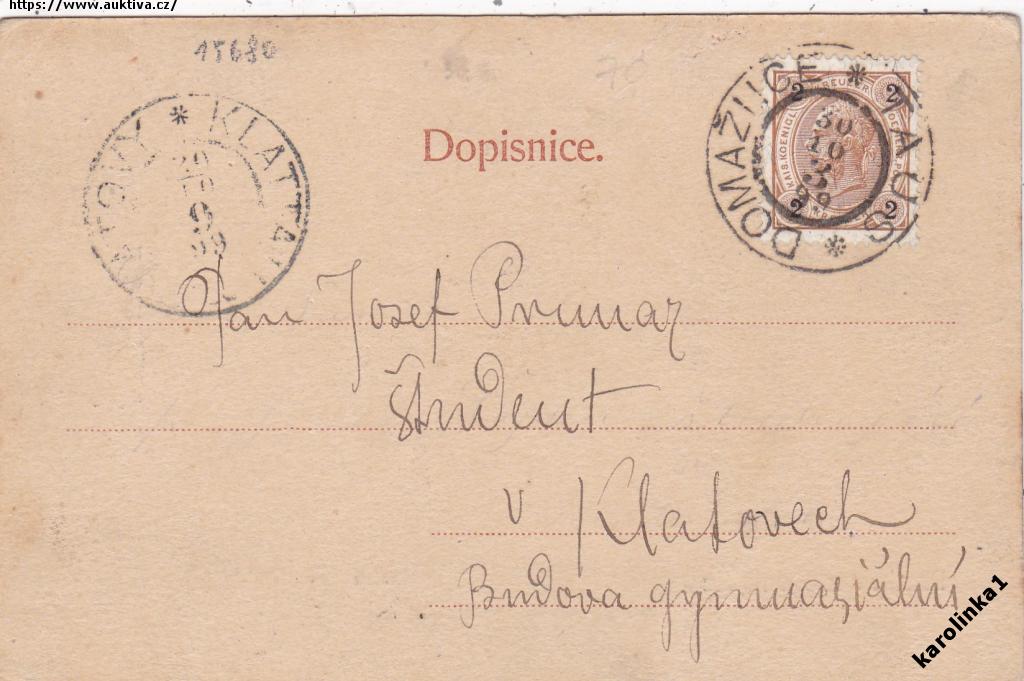 https://www.auktiva.cz/
15680
KLATTAU * KLATOVY
Dopisnice.
DOMAŽLICE * TAUS *
30
10
99
2 2
2 2
KAIS. KOENIGL.
Pan Josef Prunar
študent
v Klatovech
Budova gymnasiální
karolinka1